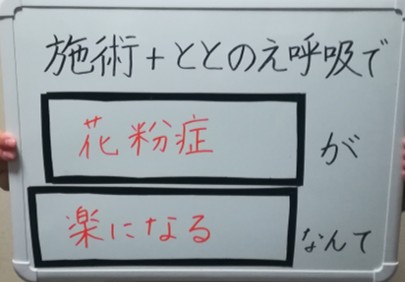 施術+ととのえ呼吸で
花粉症が
楽になるなんて